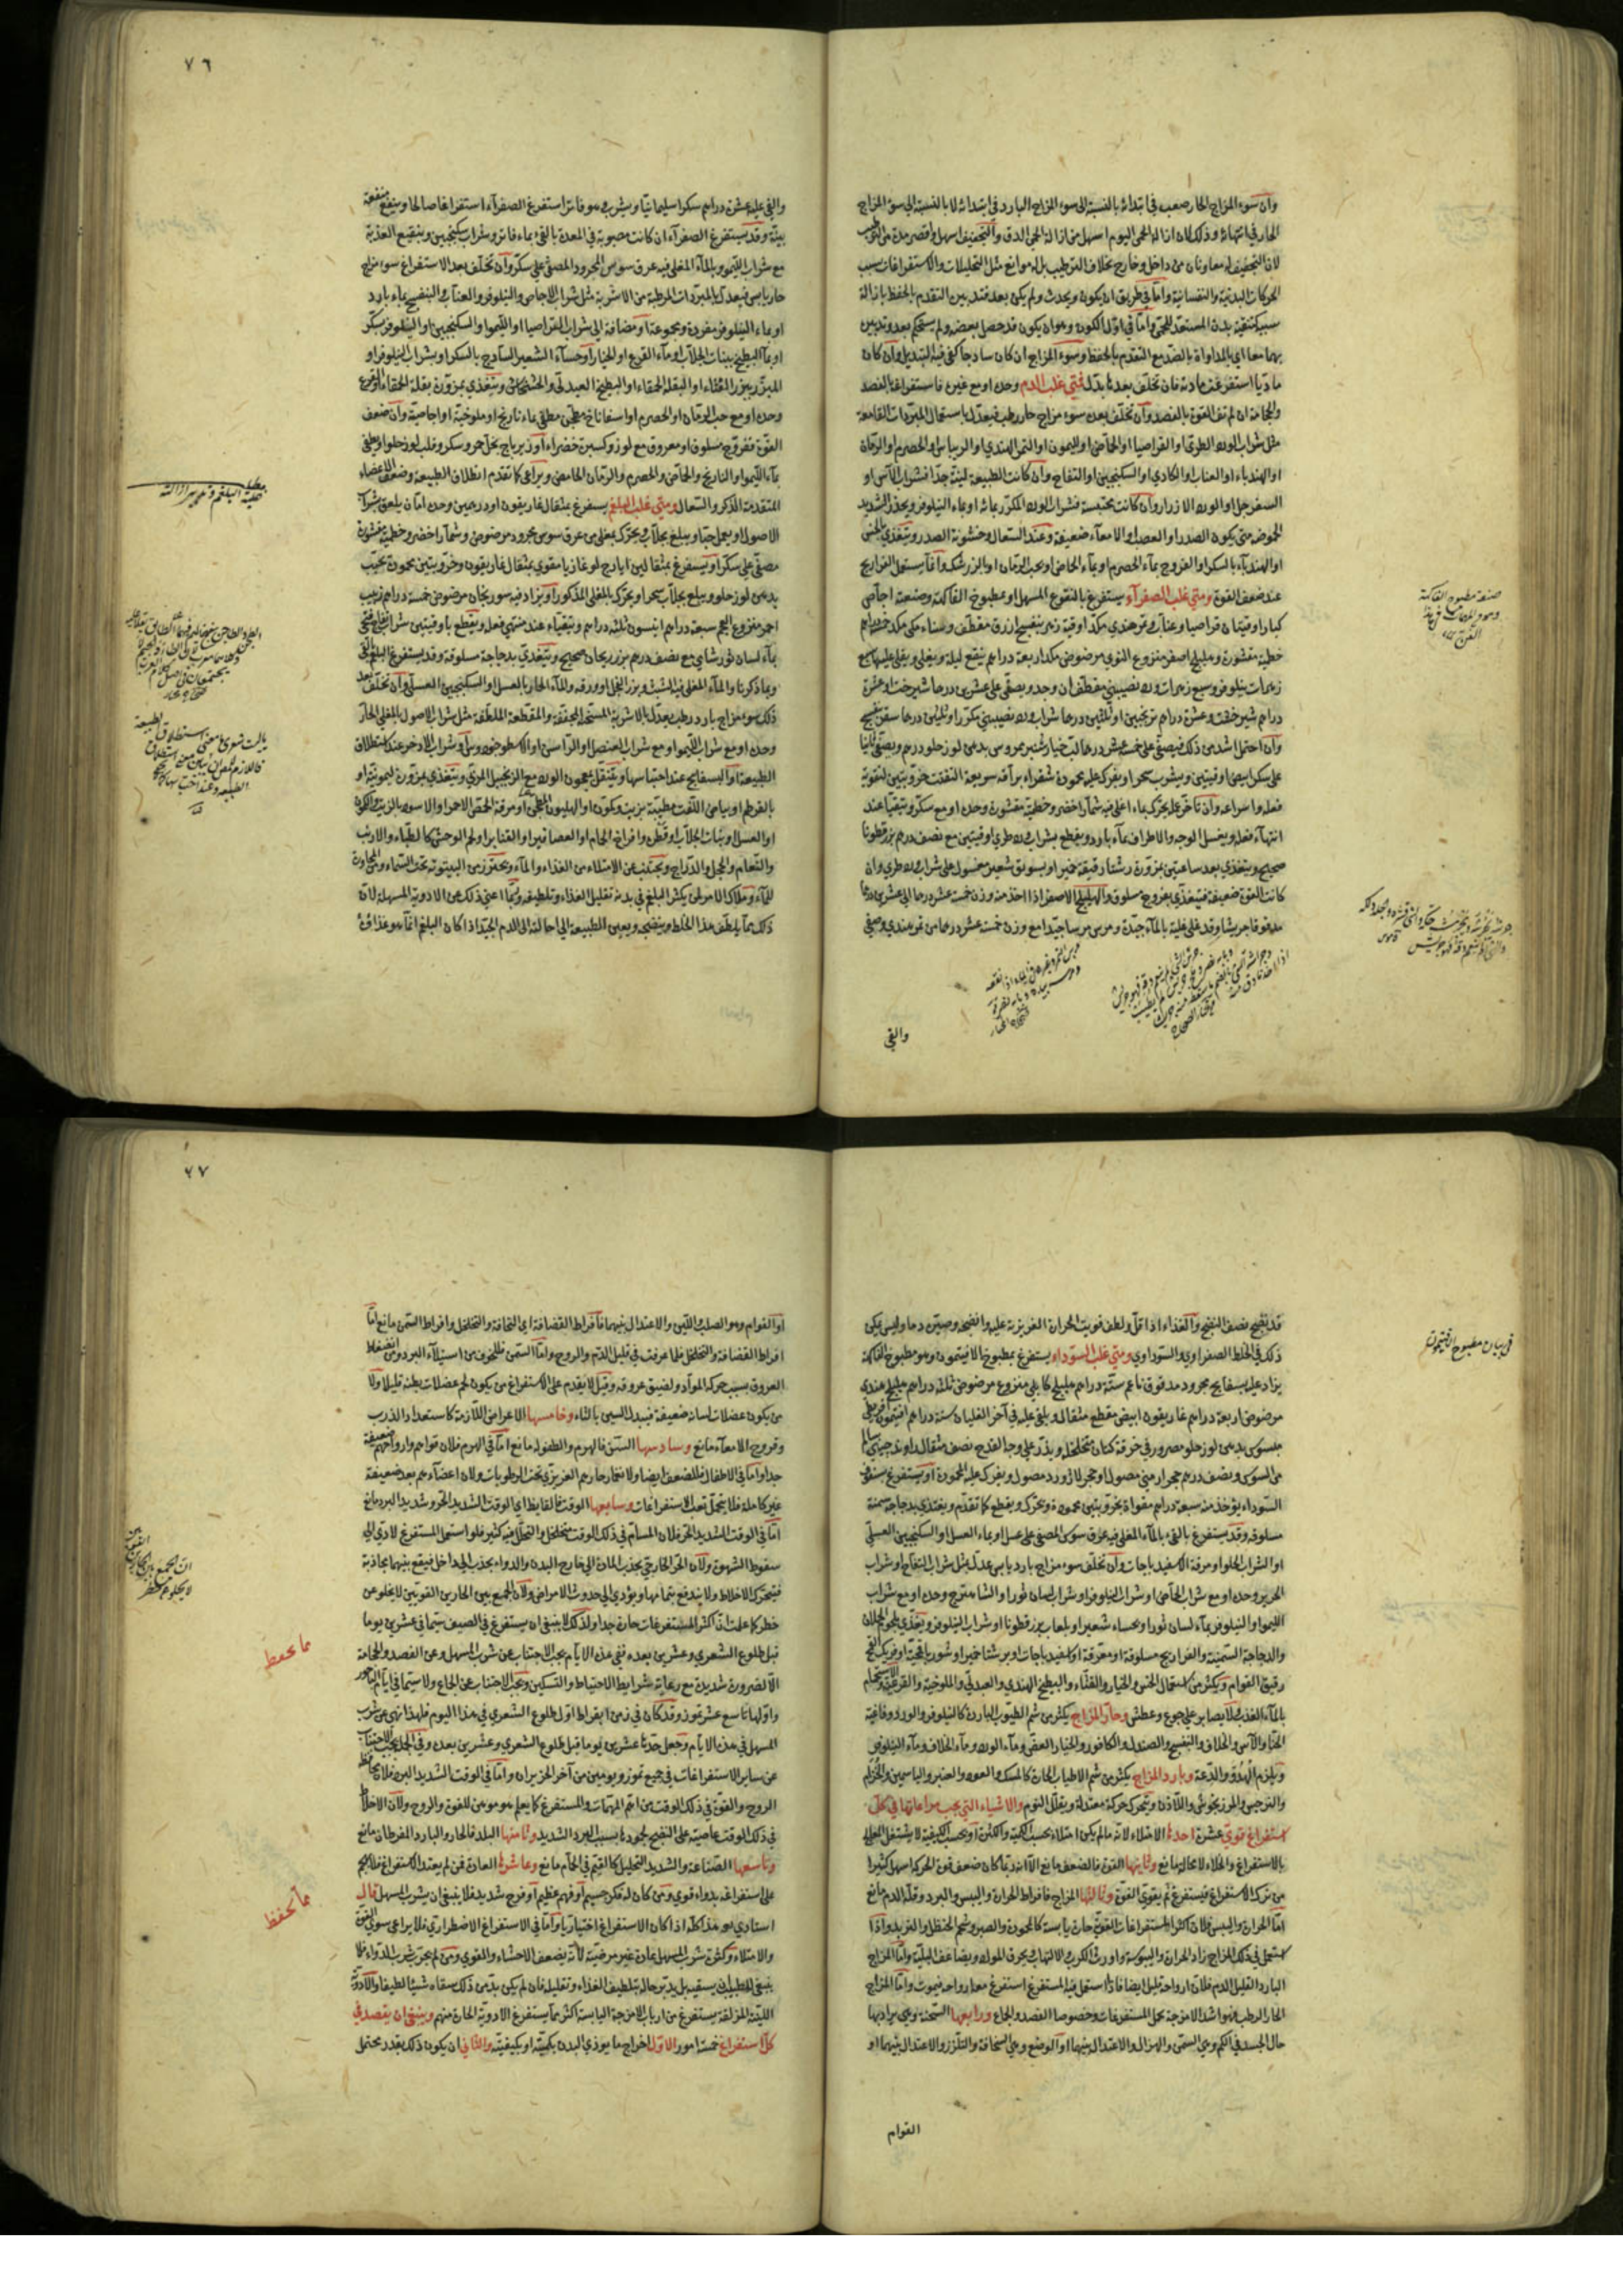 وان سوء المزاج الحار صعب في ابتدائه بالنسبة الى سوء المزاج البارد في ابتدائه لا بالنسبة الى سوء المزاج
الحار في انتهائه وذلك لان ازالة الحمى اليوم اسهل من ازالة الحمى الدق والتجفيف اسهل واقصر مدة من الترطيب
لان التجفيف له معاونان من داخل وخارج بخلاف الترطيب بل له موانع مثل التحليلات والاستفراغات بسبب
الحركات البدنية والنفسانية واما في طريق ان يكون ويحدث ولم يكن بعد فتدبيره التقدم بالحفظ بازالة
سببه كتنقية بدن المستعد للحمى واما في اول الكون وهو ان يكون قد حصل بعضه ولم يستحكم بعد وتدبيره
بهما معا اي بالمداواة بالضد مع التقدم بالحفظ وسوء المزاج ان كان ساذجا كفى فيه التبديل وان كان
ماديا استفرغت مادته فان تخلف بعدها بدل فمتى غلب الدم وحده او مع غيره فاستفراغه بالفصد
والحجامة ان لم تف القوة بالفصد وان تخلف بعده سوء مزاج حار رطب فيعدل باستعمال المبردات القامعة
مثل شراب الورد الطري او القراصيا او الحماض او الليمون او التمر الهندي او الريباس او الحصرم او الرمان
او الهندباء او العناب او الكادي او السكنجبين او التفاح وان كانت الطبيعة لينة جدا فشراب الآس او
السفرجل او الورد الازرار وان كانت محتبسة فشراب الورد المكرر بمائه او بماء النيلوفر ويحذر الشديد
الحموضة متى يكون الصدر او العصب او الامعاء ضعيفة وعند السعال وخشونة الصدر ويتغذى بالخس
او الهندباء بالسكر او الفروج بماء الحصرم او بماء الحماض او بحب الرمان او الزرشك وانما يستعمل الفراريج
عند ضعف القوة ومتى غلب الصفراء يستفرغ بالنقوع المسهل او بمطبوخ الفاكهة وصنعته اجاص
كبار اوقيتان قراصيا وعناب وتمر هندي مكد اوقية زهر بنفسج ازرق مقطف وسناء مكي مكد خمسة دراهم
خطمية مقشورة وهليلج اصفر منزوع النوى مرضوض مكد اربعة دراهم ينقع ليلة ويغلى ويلقى عليها سبع
زهرات نيلوفر وسبع زهرات ورد نصيبيني مقطف ان وجد ويصفى على عشرين درهما شيرخشت وعشرة
دراهم شيرخشت وعشرة دراهم ترنجبين او ثلثين درهما شراب ورد نصيبيني مكرر او ثلثين درهما سكر بنفسج
وان احتمل اشد من ذلك فيصفى على خمسة عشر درهما لب خيار شنبر ممروس بدهن لوز حلو درهم ويصفى ثانيا
على سكر ابيض اوقيتين ويشرب سحرا ويفرك عليه محمودة شقراء براقة سريعة التفتت خروبتين لتقوية
فعله واسراعه وان تأخر عمله يحرك بماء اغلي فيه شمار اخضر وخطمية مقشورة وحده او مع سكر ويتقيأ عند
انتهاء فعله ويغسل الوجه والاطراف بماء بارد ويقطع بشراب ورد طري اوقيتين مع نصف درهم بزر قطونا
صحيح ويتغذى بعد ساعتين بمزورة رشتا رقيقة خمير او بسويق شعير مغسول على شراب ورد طري وان
كانت القوة ضعيفة فيتغذى بفروج مسلوق والهليلج الاصفر اذا اخذ منه وزن خمسة عشر درهما الى عشرين درهما
مدقوقا جريشا وقد غلي غلية بالماء جيدة ومرس مرسا جيدا مع وزن خمسة عشر درهما من تمر هندي وصفي
والقي
صنعة مطبوخ الفاكهة
٧٦
والقي عليه عشرة دراهم سكرا سليمانيا ويشرب وهو فاتر استفرغ الصفراء استفراغا صالحا وينفع منفعة
بينة وقد يستفرغ الصفراء ان كانت مصبوبة في المعدة بالقيء بماء فاتر وشراب سكنجبين وبنقيع العذبة
مع شراب الليمو وبالماء المغلي فيه عرق سوس المجرود المصفى على سكر وان تخلف بعد الاستفراغ سوء مزاج
حار يابس فيعدل بالمبردات المرطبة من الاشربة مثل شراب الاجاص والنيلوفر والعناب والبنفسج بماء بارد
او بماء النيلوفر مفردة ومجموعة او مضافة الى شراب القراصيا او الليمو او السكنجبين او النيلوفر بسكر
او بماء البطيخ بنبات الجلاب او ماء القرع او الخيار او حساء الشعير الساذج بالسكر او بشراب النيلوفر او
المبزر ببزر القثاء او البقلة الحمقاء او البطيخ العبدلي والخشخاش ويتغذى بمزورة بقلة الحمقاء او القرع
وحده او مع حب الرمان او الحصرم او اسفاناخ مطجن مطفى بماء نارنج او ملوخية او اجاصية وان ضعف
القوة ففروج مسلوق او معروق مع لوز وكسبرة خضراء او زيرباج بخل خمر وسكر وقلب لوز حلو او يطفى
بماء الليمو او النارنج والحماض والحصرم والرمان الحامض ويراعى كما تقدم انطلاق الطبيعة وضعف الاعضاء
المتقدمة الذكر والسعال ومتى غلب البلغم يستفرغ بمثقال غاريقون او درهمين وحده اما ان يلعق بشراب
الاصول او يعمل حبا ويبلع بجلاب ويحرك بمغلى من عرق سوس مجرود مرضوض وشمار اخضر وخطمية مقشورة
مصفى على سكر او يستفرغ بمثقالين ايارج لوغاذيا مقوى بمثقال غاريقون وخروبتين محمودة تحبب
بدهن لوز حلو ويبلع بجلاب سحرا ويحرك بالمغلى المذكور او يزاد فيه سورنجان مرضوض خمسة دراهم زبيب
احمر منزوع العجم سبعة دراهم انيسون ثلثة دراهم ويتقياء عند منتهى فعله ويقطع باوقيتين شراب تفاح فتحي
بماء لسان ثور شامي مع نصف درهم بزر ريحان صحيح ويتغذى بدجاجة مسلوقة وقد يستفرغ البلغم بالقيء
وبما ذكرنا والماء المغلي فيه الشبت وبزر الفجل او ورقه والماء الحار بالعسل او السكنجبين العسلي وان تخلف بعد
ذلك سوء مزاج بارد رطب يعدل بالاشربة المسخنة المجففة والمقطعة الملطفة مثل شراب الاصول بالمغلي الحار
وحده او مع شراب الليمو او مع شراب العنصل او الراسن او الاسطوخودوس او شراب الاذخر عند استطلاق
الطبيعة او البسفايج عند احتباسها ويتنقل بمعجون الورد مع الزنجبيل المربى ويتغذى بمزورة ليمونية او
بالقرطم او بياض اللفت مطيبة بزيت وكمون او الهليون المغلي او مرقة الحمص الاحمر او الاسود بالزيت والكمون
او العسل او نبات الجلاب او قطر وافراخ الحمام او العصافير او القنابر او لحم الوحش كالظباء والارنب
والنعام والحجل والدراج ويجتنب عن الامتلاء من الغذاء والماء ويحترز من البيتوتة تحت السماء والمجاورة
للماء وملاك الامر لمن يكثر البلغم في بدنه تقليل الغذاء وتلطيفه وربما اغنى ذلك عن الادوية المسهلة لان
ذلك مما يلطف هذا الخلط وينضجه ويعين الطبيعة الى احالته الى الدم الجيد اذا كان البلغم انما هو غذاء
قد نضج نصف النضج والغذاء اذا قل ولطف قويت الحرارة الغريزية عليه وانضجه وصيره دما وليس يمكن
ذلك في الخلط الصفراوي والسوداوي ومتى غلب السوداء يستفرغ بمطبوخ الافيتمون وهو مطبوخ الفاكهة
يزاد عليه بسفايج مجرود مدقوق ناعم ستة دراهم هليلج كابلي منزوع مرضوض ثلثة دراهم هليلج هندي
مرضوض اربعة دراهم غاريقون ابيض مقطع مثقال ويلقى عليه في آخر الغليان ستة دراهم افيتمون اقريطي
مبسوس بدهن لوز حلو مصرور في خرقة كتان متخلخل ويذر على وجه القدح نصف مثقال
من السوس ونصف درهم حجر ارمني مصول او حجر لازورد مصول ويفرك عليه المحمودة او يستفرغ بسفوف
السوداء يؤخذ منه سبعة دراهم مقواة بخروبتين محمودة ويحرك ويقطع كما تقدم ويغتذي بدجاجة سمنة
مسلوقة وقد يستفرغ بالقيء بالماء المغلي فيه عرق سوس المصفى على عسل او بماء العسل او السكنجبين العسلي
او الشراب الحلو او مرقة الاسفيدباجات وان تخلف سوء مزاج بارد يابس عدل بمثل شراب التفاح او شراب
الحرير وحده او مع شراب الحماض او شراب النيلوفر او شراب لسان ثور او الشاهترج وحده او مع شراب
الليمو او النيلوفر بماء لسان ثور او بحساء شعير او بلعاب بزر قطونا او شراب النيلوفر ويغذى بلحم الحملان
والدجاجة السمينة والفراريج مسلوقة او معرقة او اسفيدباجات او برشتا خمير او شوربا قمحية او فريك القمح
رقيق القوام ويكثر من استعمال الخس والخيار والقثاء والبطيخ الهندي والعبدلي والملوخية والقرعية والاستحمام
بالماء العذب ولا يصابر على جوع وعطش وحار المزاج يكثر من شم الطيوب الباردة كالنيلوفر والورد وفاغية
الحنا والآس والخلاف والبنفسج والصندل والكافور والخيار الغض وماء الورد وماء الخلاف وماء النيلوفر
ويلزم الهدو والدعة وبارد المزاج يكثر من شم الاطياب الحارة كالمسك والعود والعنبر والياسمين والخزام
والنرجس والمرزنجوش واللاذن ويتحرك حركة معتدلة ويقلل النوم والاشياء التي يجب مراعاتها في كل
استفراغ قوي عشرة احدها الامتلاء لانه مالم يكن امتلاء بحسب الكمية والكثرة او بحسب الكيفية لا يشتغل
بالاستفراغ والخلاء لا محالة مانع وثانيها القوة فالضعف مانع الا انه ربما كان ضعف قوة الحركة اسهل كثيرا
من ترك الاستفراغ فيستفرغ ثم يقوي القوة وثالثها المزاج فافراط الحرارة واليبس والبرد وقلة الدم مانع
اما الحرارة واليبس فلان اكثر المستفرغات القوية حارة يابسة كالمحمودة والصبر وشحم الحنظل والتربد واذا
استعمل في ذلك المزاج زاد الحرارة واليبوسة واورث الكرب والالتهاب ويحرق المواد ويضاعف البلية واما المزاج
البارد القليل الدم فلان ارواحه قليل ايضا فاذا استعمل فيه المستفرغ استفرغ معه ارواحه فيموت واما المزاج
الحار الرطب فهو اشد الامزجة تحمل المستفرغات وخصوصا الفصد والجماع ورابعها السحنة وهي يراد بها
حال الجسد في الكم وهي السمن والهزال والاعتدال بينهما او الوضع وهي السخافة والتلزز والاعتدال بينهما او
القوام
في بيان مطبوخ افتيمون
٦٧
او القوام وهو الصلب واللين والاعتدال بينهما فافراط القضافة اي النحافة والتخلخل وافراط السمن مانع اما
افراط القضافة والتخلخل فلما عرفت في قليل الدم والروح واما السمن فللخوف من استيلاء البرد ومن انضغاط
العروق بسبب حركة المواد ولضيق عروقه وقيل لا يقدم على الاستفراغ من يكون لحم عضلات بطنه قليلا ولا
من يكون عضلات لسانه ضعيفة فيبدل السين بالثاء وخامسها الاعراض اللازمة كاستعداد الذرب
وقروح الامعاء مانع وسادسها السن فالهرم والطفولة مانع اما في الهرم فلان قواهم وارواحهم ضعيفة
جدا واما في الاطفال فللضعف ايضا ولانغمار حارهم الغريزي تحت الرطوبات ولان اعضاءهم بعد ضعيفة
غير كاملة فلا يتحمل تعب الاستفراغات وسابعها الوقت فالقايظ اي الوقت الشديد الحر وشديد البرد مانع
اما في الوقت الشديد الحر فلان المسام في ذلك الوقت متخلخل والتحلل فيه كثير فلو استعمل المستفرغ لادى الى
سقوط الشهوة ولان الحر الخارجي يجذب المادة الى خارج البدن والدواء يجذب الى داخل فيقع بينهما مجاذبة
فيتحرك الاخلاط ولا يندفع بتمامها ويؤدي الى حدوث الامراض ولان الجمع بين الحارين القويين لا يخلو عن
خطر كما علمت ان اكثر المستفرغات حارة جدا ولذلك لا ينبغي ان يستفرغ في الصيف سيما في عشرين يوما
قبل طلوع الشعرى وعشرين بعده ففي هذه الايام يجب الاجتناب عن شرب المسهل وعن الفصد والحجامة
الا لضرورة شديدة مع رعاية شرايط الاحتياط والتسكين ويجب الاجتناب عن الجماع ولا سيما في ايام الباحور
واولها تاسع عشر تموز وقد كان في زمن ابقراط اول طلوع الشعرى في هذا اليوم فلهذا نهى عن شرب
المسهل في هذه الايام وجعل حدها عشرين يوما قبل طلوع الشعرى وعشرين بعده وفي الجملة يجب الاجتناب
عن ساير الاستفراغات في جميع تموز ويومين من آخر الحزيران واما في الوقت الشديد البرد فلان حفظ
الروح والقوة في ذلك الوقت من اهم المهمات والمستفرغ كما يعلم هو موهن للقوة والروح ولان الاخلاط
في ذلك الوقت عاصية على النضج لجمودها بسبب البرد الشديد وثامنها البلد فالحار والبارد المفرطان مانع
وتاسعها الصناعة والشديد التحليل كالقيم في الحمام مانع وعاشرها العادة فمن لم يعتد الاستفراغ فلا يهجم
على استفراغه بدواء قوي ومن كان له فكر جسيم او فهم عظيم او فرح شديد فلا ينبغي ان يشرب المسهل قال
استاذي هو هذا كله اذا كان الاستفراغ اختياريا واما في الاستفراغ الاضطراري فلا يراعى سوى القوة
والامتلاء وكثرة شرب المسهل عادة غير مرضية لانه يضعف الاحشاء والقوى ومن لم يجرب شرب الدواء فلا
ينبغي للطبيب ان يسقيه بل يدبر حاله بتلطيف الغذاء وتقليله فان لم يكن بد من ذلك سقاه شيئا لطيفا والادوية
اللينة المزلقة يستفرغ من ارباب الامزجة اليابسة اكثر مما يستفرغ الادوية الحارة منهم وينبغي ان يقصد في
كل استفراغ خمسة امور الاول اخراج ما يوذي البدن بكميته او بكيفيته والثاني ان يكون ذلك بقدر يحتمل
مما يحفظ
مما يحفظ